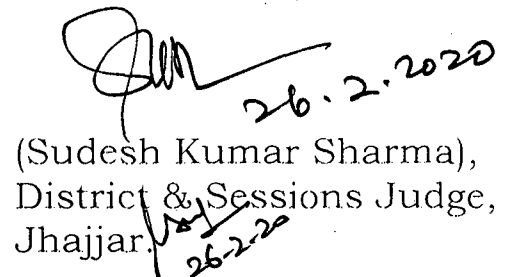 26.2.2020
(Sudesh Kumar Sharma),
District & Sessions Judge,
Jhajjar.
26-2-20